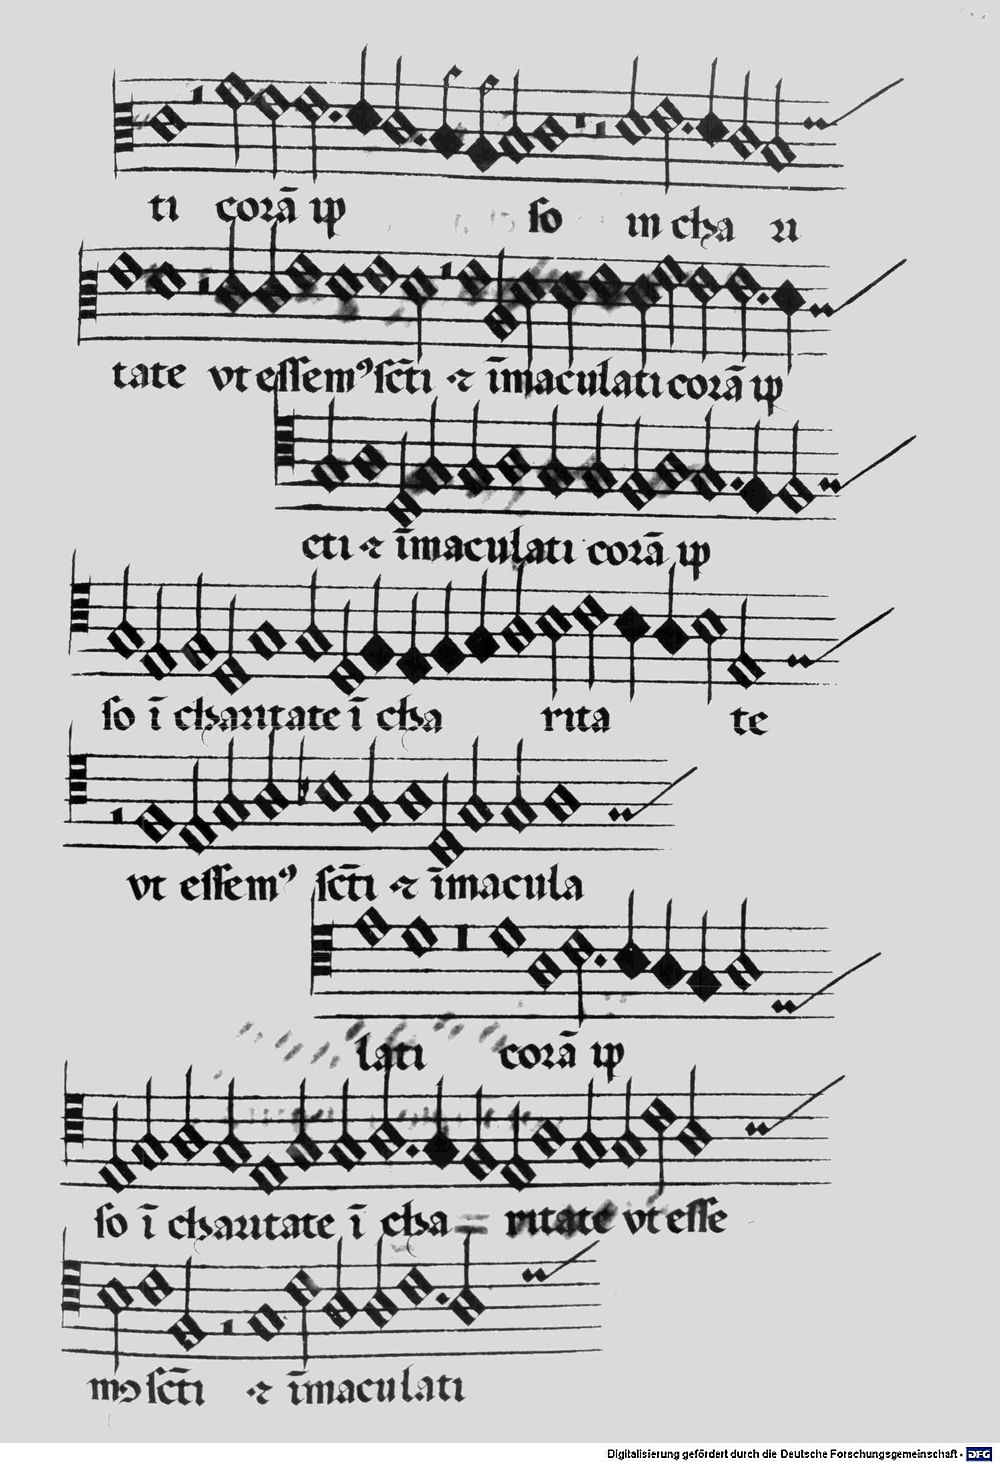 ti corā ip so in cha ri
tate vt essemꝰ sc̄ti ⁊ īmaculati corā ip
cti ⁊ īmaculati corā ip
so ī charitate ī cha rita te
vt essemꝰ sc̄ti ⁊ īmacula
lati corā ip
so ī charitate ī cha = ritate vt esse
mꝰ sc̄ti ⁊ īmaculati
Digitalisierung gefördert durch die Deutsche Forschungsgemeinschaft - DFG